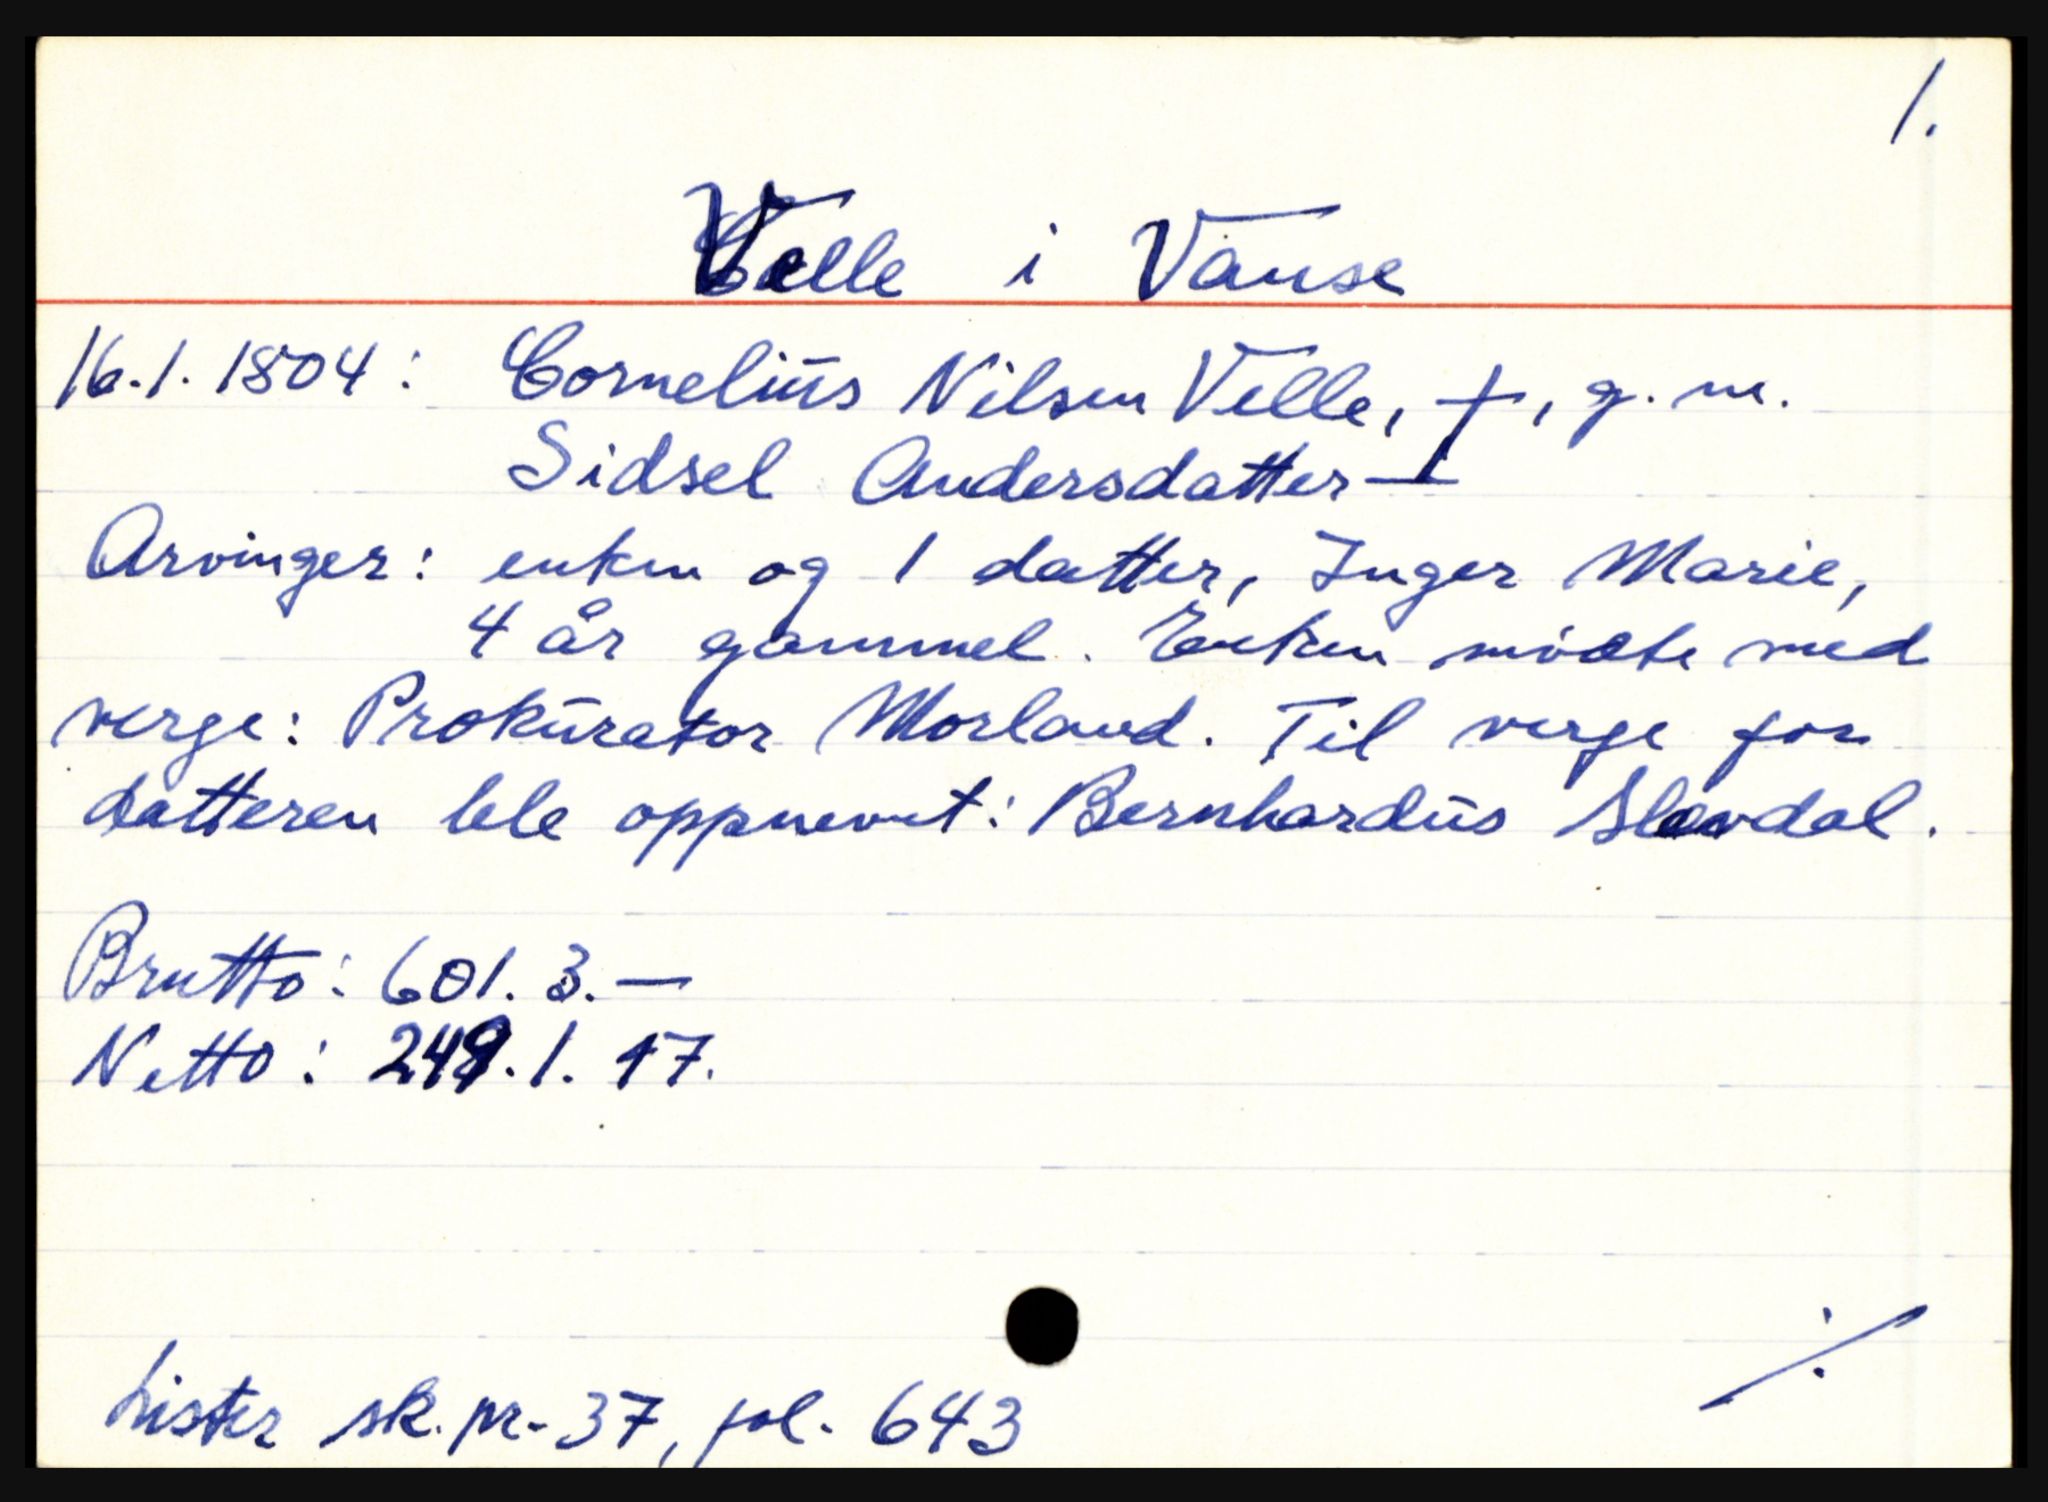 1.
Velle i Vanse
16.1.1804: Cornelius Nilsen Velle, †, g.m.
Sidsel Andersdatter
Arvinger: enken og 1 datter, Inger Marie,
4 år gammel. Enken møtte med
verge: Prokurator Morland. Til verge for
datteren ble oppnevnt: Bernhardus Slevdal.
Brutto: 601. 3. —
Netto: 249. 1. 17.
Lister sk.pr. 37, fol. 643